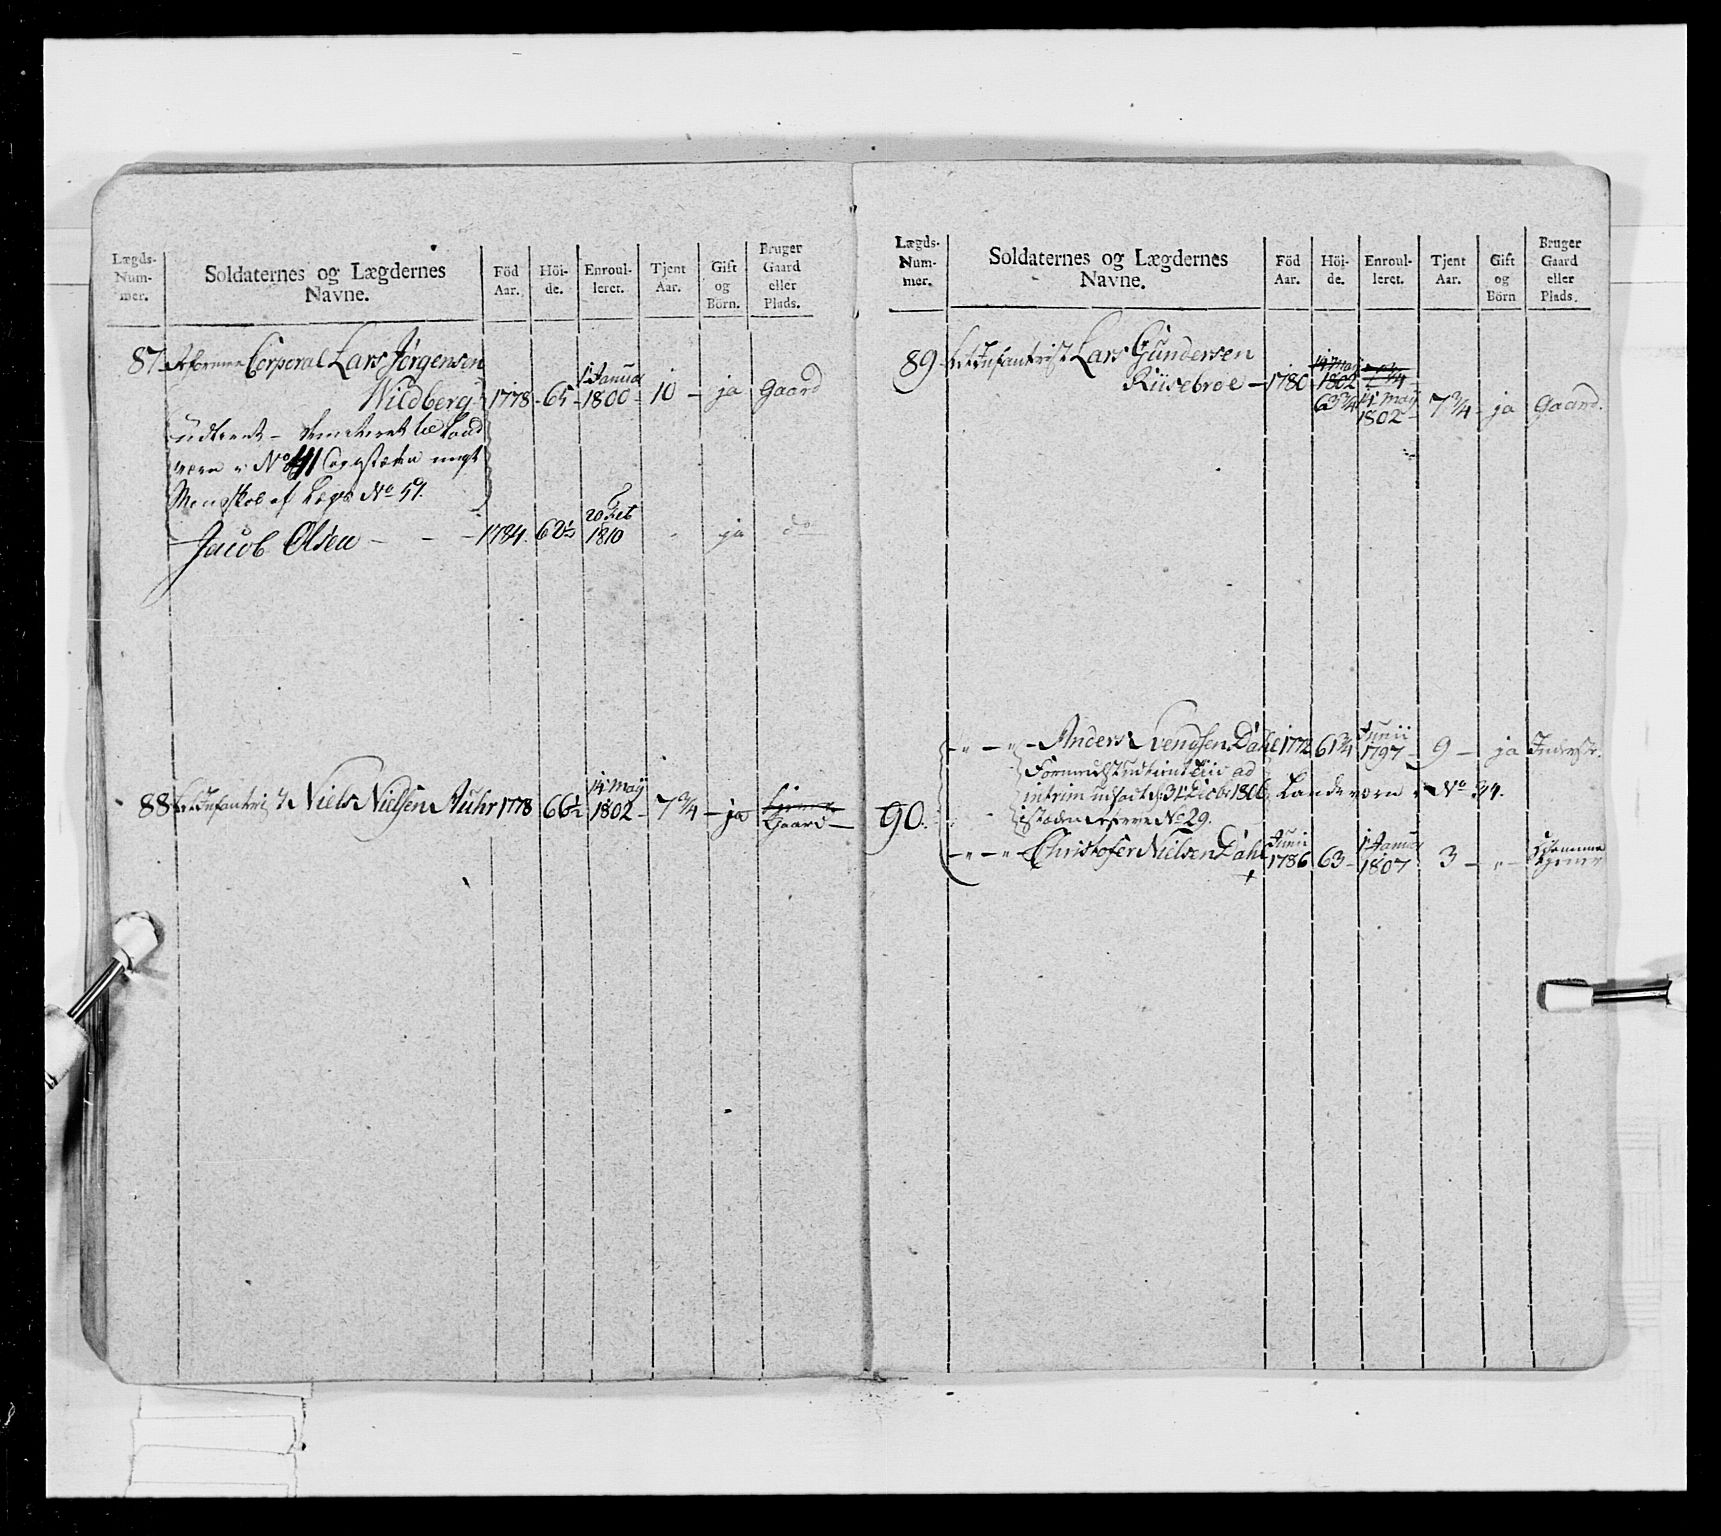 Lægds-
Num-
mer.
Soldaternes og Lægdernes
Navne.
Föd
Aar.
Höi-
de.
Enroul-
leret.
Tjent
Aar.
Gift
og
Börn.
Bruger
Gaard
eller
Plads.
87 Corporal Lars Jørgensen
Wildberg 1778 - 65 - 1 Januar 1800 - 10 - ja Gaard
No 41
af Lægd No 59.
Jacob Olsen - - - 1784. 62½ 20 Feb 1810 ja do
88 Let Infanterist Niels Nielsen Auhr 1778 66½ 14 May 1802 - 7¾ - ja Gaard -
Lægds-
Num-
mer.
Soldaternes og Lægdernes
Navne.
Föd
Aar.
Höi-
de.
Enroul-
leret.
Tjent
Aar.
Gift
og
Börn
Bruger
Gaard
eller
Plads.
89 Let Infanterist Lars Gundersen
Riisebroe - 1780 14 May 1802
63¾ 14 May 1802 - 7¾ - ja Gaard.
Anders Svendsen Dahl 1772 61¾ Junii 1797 - 9 - ja Inderst.
ad
90. intrim udsadt 31 Decbr 1806 Landeværn No 34.
No 29.
Christofer Nielsen Dahl Junii 1786 63 - 1 Januar 1807 3 - " - hiemme